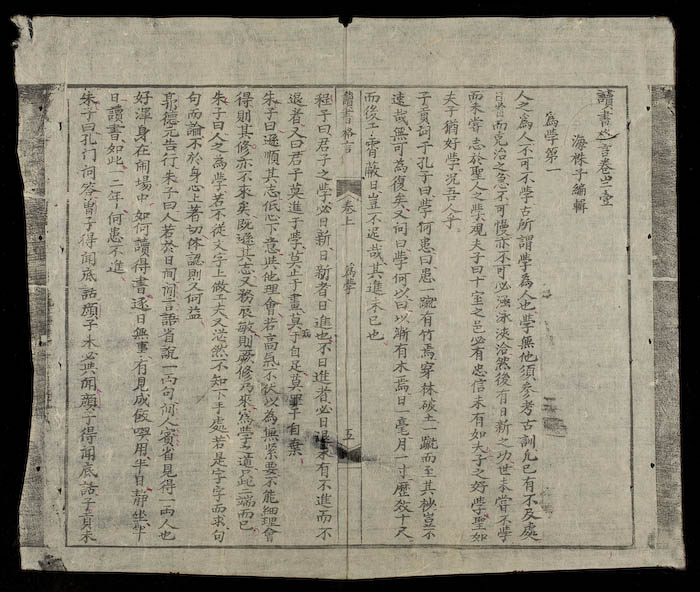 讀書格言卷之壹
海株子編輯
為學第一
人之為人不可不學古所謂學為人也學無他須參考古訓凡己有不及處
而克治之急不可慢亦不可必涵泳浹洽然後有日新之功世未嘗不學
而未嘗志於聖人之學觀夫子曰十室之邑必有忠信未有如夫子之好學聖如
夫子猶好學況吾人乎
子貢詞于孔子曰學何患曰患一蹴有竹焉穿林破土一蹴而至其杪豈不
速哉無可為復矣又问曰學何以曰以漸有木焉日一毫月一寸歷效十尺
而後工霄蔽日豈不遲哉其進未已也
讀書格言
卷上
為學
五
程子曰君子之學必日新日新者日進也不日進者必日退未有不進而不
退者又曰君子莫進于學莫止于畫莫于自足莫罪于自棄
朱子曰遜順其志低心下意與他理會若高氣不伏以為無緊要不能細理會
得則其修亦不來矣既遜其志又務辰敏則厥修乃來為學之道只此二端而已
朱子曰人之為學若不從文字上做工夫又茫然不知下手處若是字字而求句
句而論不於身心上著切体認則又何益
郭德元告行朱子曰人若於日间閒言語省說一兩句闲人賓省見得一兩人也
好渾身在鬧場中如何讀得書逐日無事有見成飯喫用半日靜坐半
日讀書如此一二年何患不進
朱子曰孔门问答曾子得闻底話顏子未必與闻顏子得闻底話子貢未